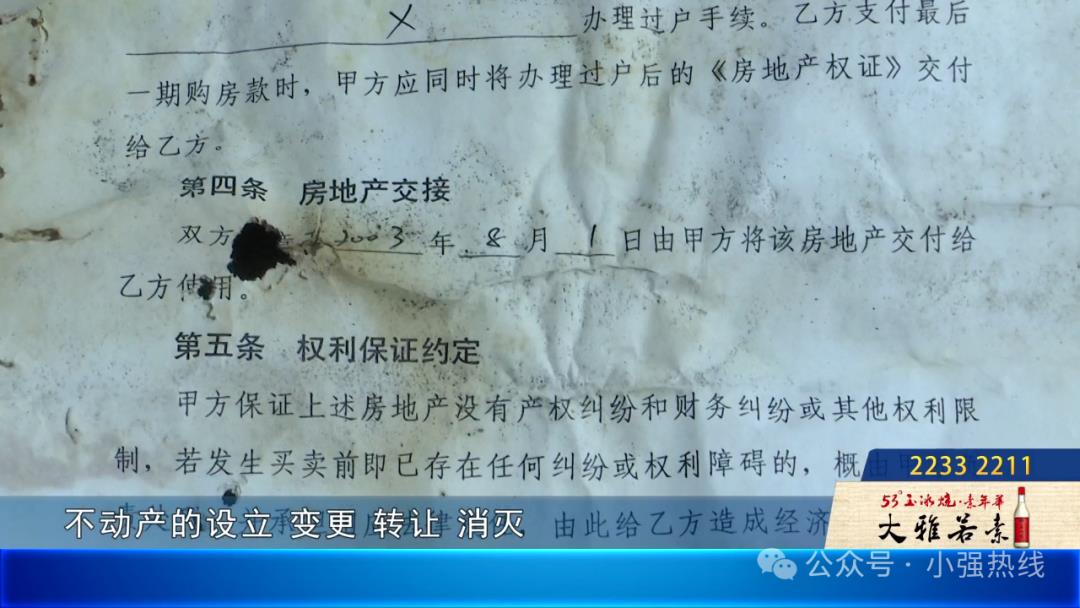 X 办理过户手续。乙方支付最后
一期购房款时，甲方应同时将办理过户后的《房地产权证》交付
给乙方。
第四条 房地产交接
双方 2003 年 8 月 1 日由甲方将该房地产交付给
乙方使用。
第五条 权利保证约定
甲方保证上述房地产没有产权纠纷和财务纠纷或其他权利限
制，若发生买卖前即已存在任何纠纷或权利障碍的，概由甲
由此给乙方造成经济
不动产的设立 变更 转让 消灭
2233 2211
53°玉冰烧·素年华
大雅若素
公众号·小强热线